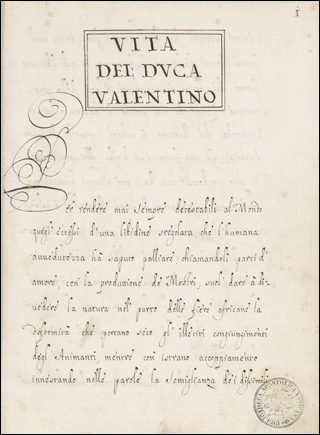 1
VITA
DEL DVCA
VALENTINO
Per rendere mai sempre detestabili al Mondo
quegli eccessi d'una libidine sregolata che l'humana
auuedutezza hà saputo palliare chiamandoli parti d'
amore con la produzione de Mostri suol dare à di-
uedere la natura nell' parto delle fiere africane la
deformità che portano seco gl' illeciti congiungimenti
degl Animanti mentre con istrano accoppiamento
innestando nelle parole la somiglianza dei dissimili